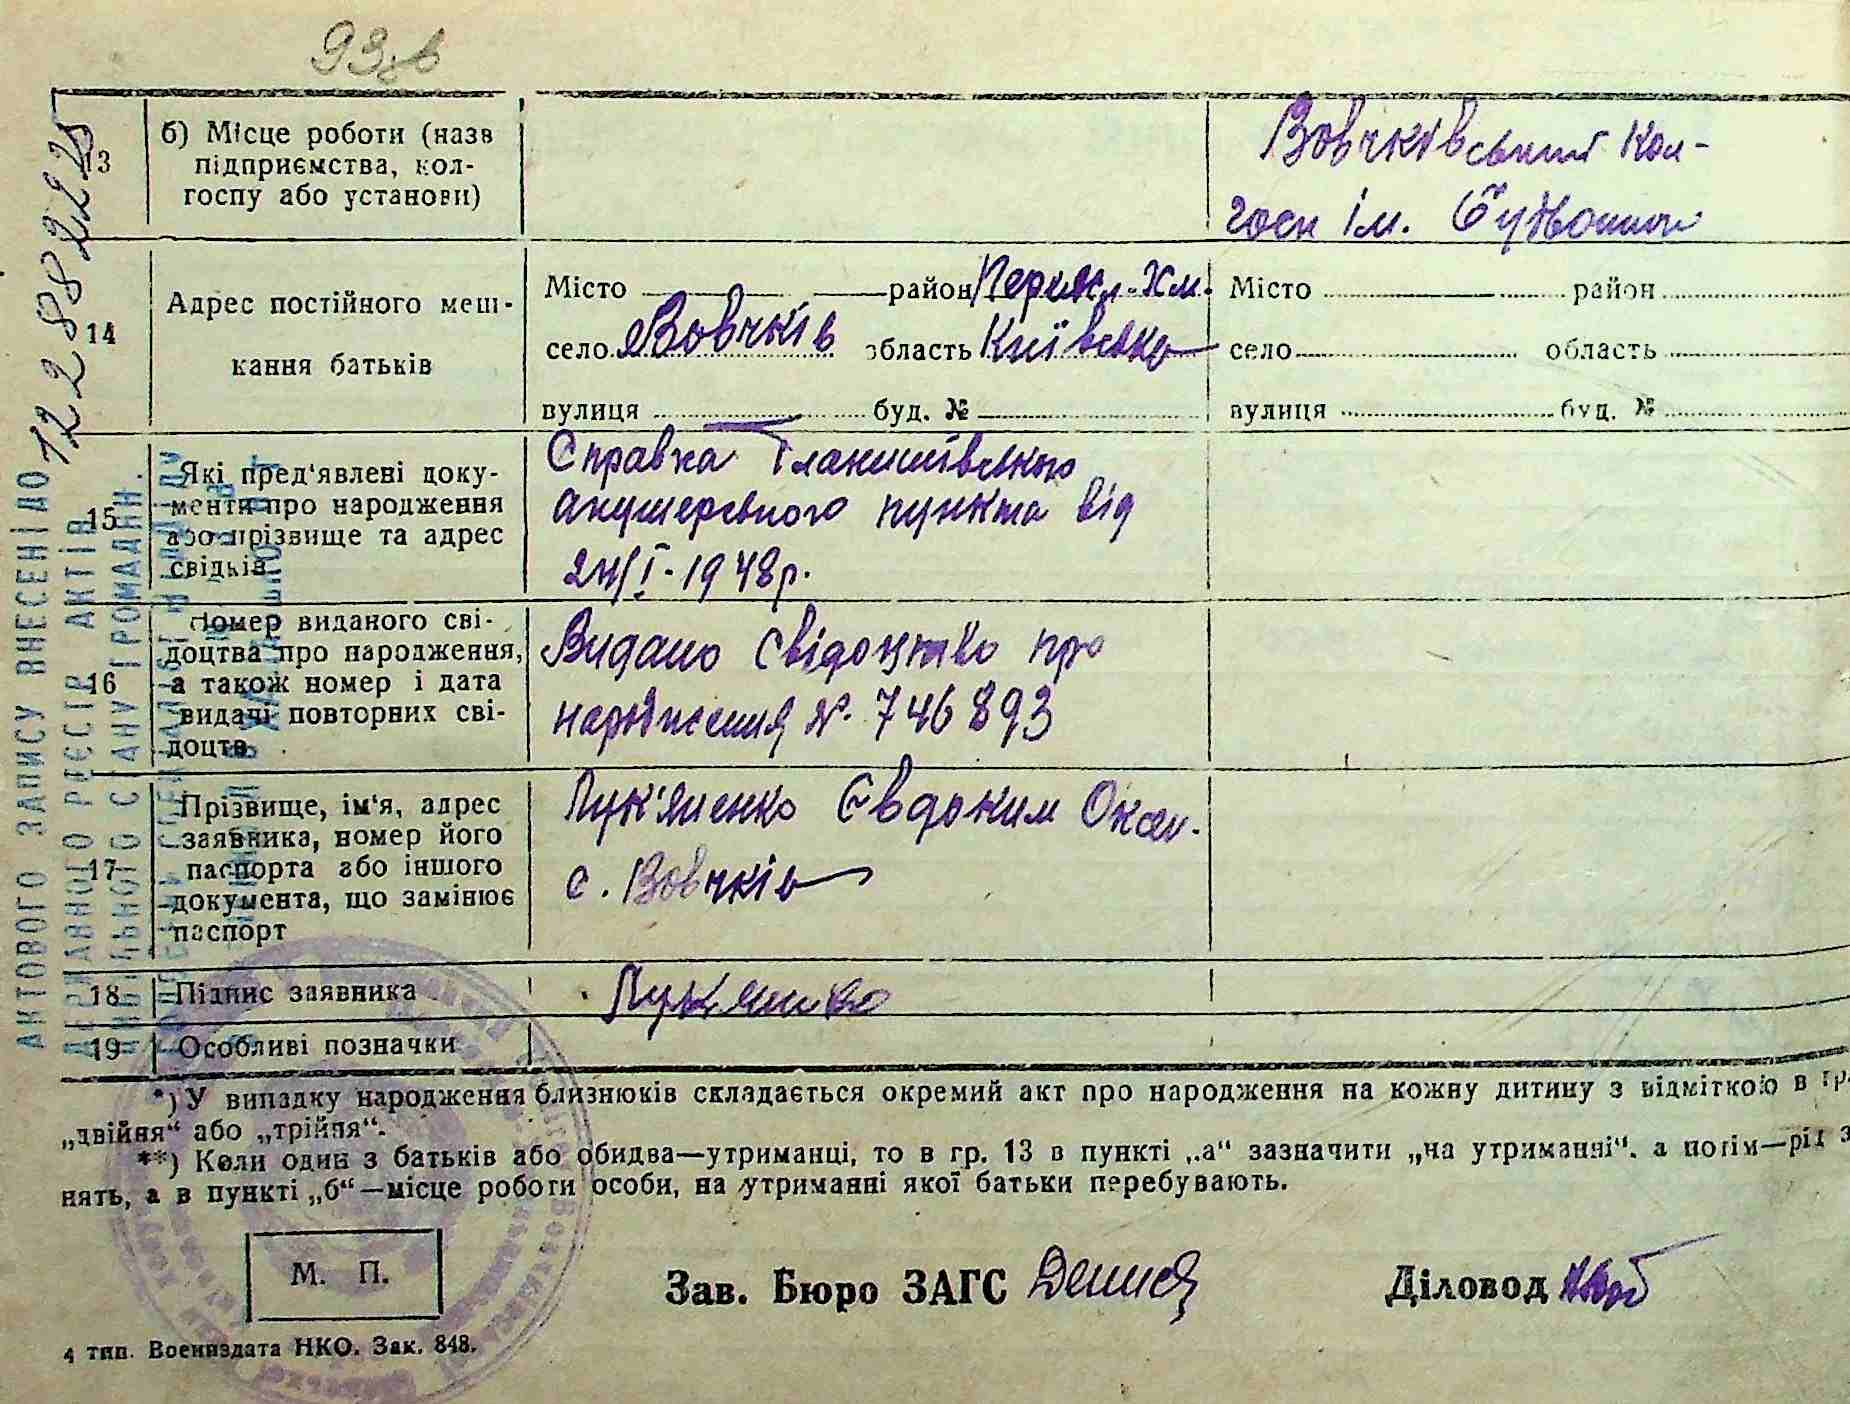 93зв
12288222
13
б) Місце роботи (назв
підприємства, кол-
госпу або установи)
Вовчківський кол-
госп ім. Будьонного
14
Адрес постійного меш-
кання батьків
Місто район Переясл.-Хм.
село Вовчків область Київська
вулиця буд. №
Місто район
село область
вулиця буд. №
15
Які пред'явлені доку-
менти про народження
або прізвище та адрес
свідків
Справка
акушерського пункта від
24/I-1948р.
16
Номер виданого сві-
доцтва про народження,
а також номер і дата
видачі повторних сві-
доцтв
Видано свідоцтво про
народження №. 746893
17
Прізвище, ім'я, адрес
заявника, номер його
паспорта або іншого
документа, що замінює
паспорт
Лук'яненко Євдоким
с. Вовчків
18
Підпис заявника
Лукяненко
19
Особливі позначки
АКТОВОГО ЗАПИСУ ВНЕСЕНІ ДО
ДЕРЖАВНОГО РЕЄСТР АКТІВ
ЦИВІЛЬНОГО СТАНУ ГРОМАДЯН.
*) У випадку народження близнюків складається окремий акт про народження на кожну дитину з відміткою в гр.
„двійня“ або „трійня“.
**) Коли один з батьків або обидва—утриманці, то в гр. 13 в пункті „а“ зазначити „на утриманні“, а потім—рід з
нять, а в пункті „б“—місце роботи особи, на утриманні якої батьки перебувають.
М. П.
Зав. Бюро ЗАГС
Діловод
4 тип. Воениздата НКО. Зак. 848.